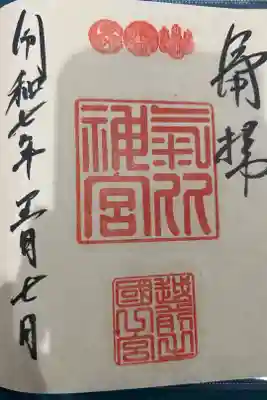 奉拝
氣比
神宮
越前
國一宮
令和七年五月七日